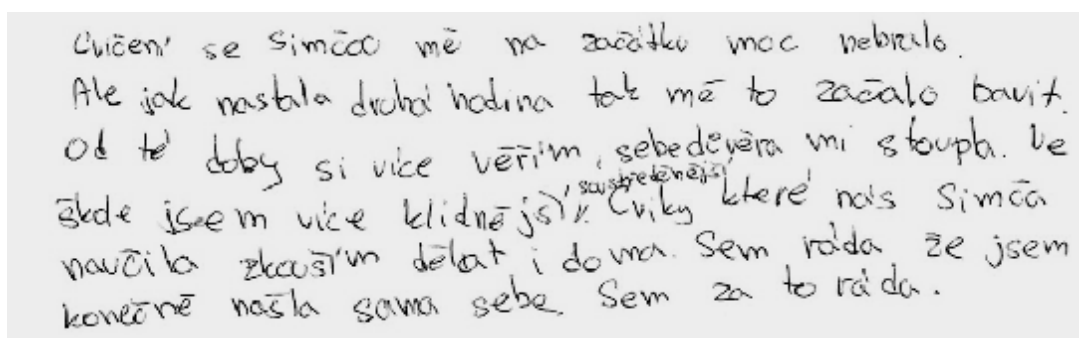 Cvičení se Simčou mě na začátku moc nebralo.
Ale jak nastala druhá hodina tak mě to začalo bavit.
Od té doby si více věřím, sebedůvěra mi stoupla. Ve
škole jsem více klidnější, soustředěnější. Cviky které nás Simča
naučila zkouším dělat i doma. Sem ráda že jsem
konečně našla sama sebe. Sem za to ráda.